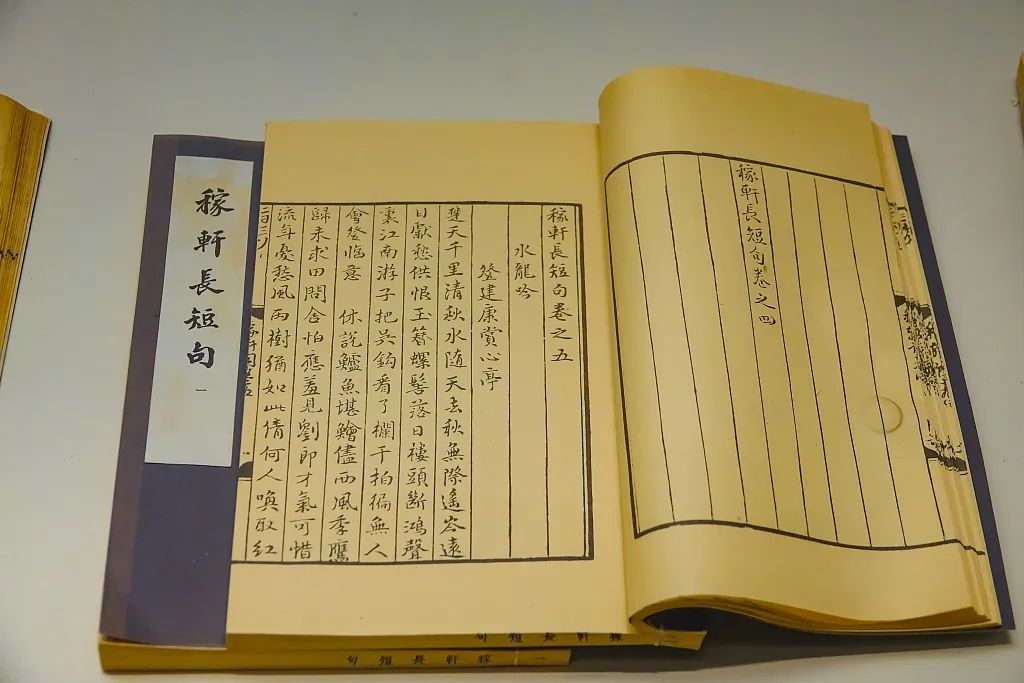 稼軒長短句卷之四
稼軒長短句卷之五
水龍吟
登建康賞心亭
楚天千里清秋水隨天去秋無際遙岑遠
目獻愁供恨玉簪螺髻落日樓頭斷鴻聲
裏江南游子把吳鉤看了欄干拍徧無人
會登臨意 休說鱸魚堪鱠儘西風季鷹
歸未求田問舍怕應羞見劉郎才氣可惜
流年憂愁風雨樹猶如此倩何人喚取紅
稼軒長短句 一
稼軒長短句
稼軒長短句 一